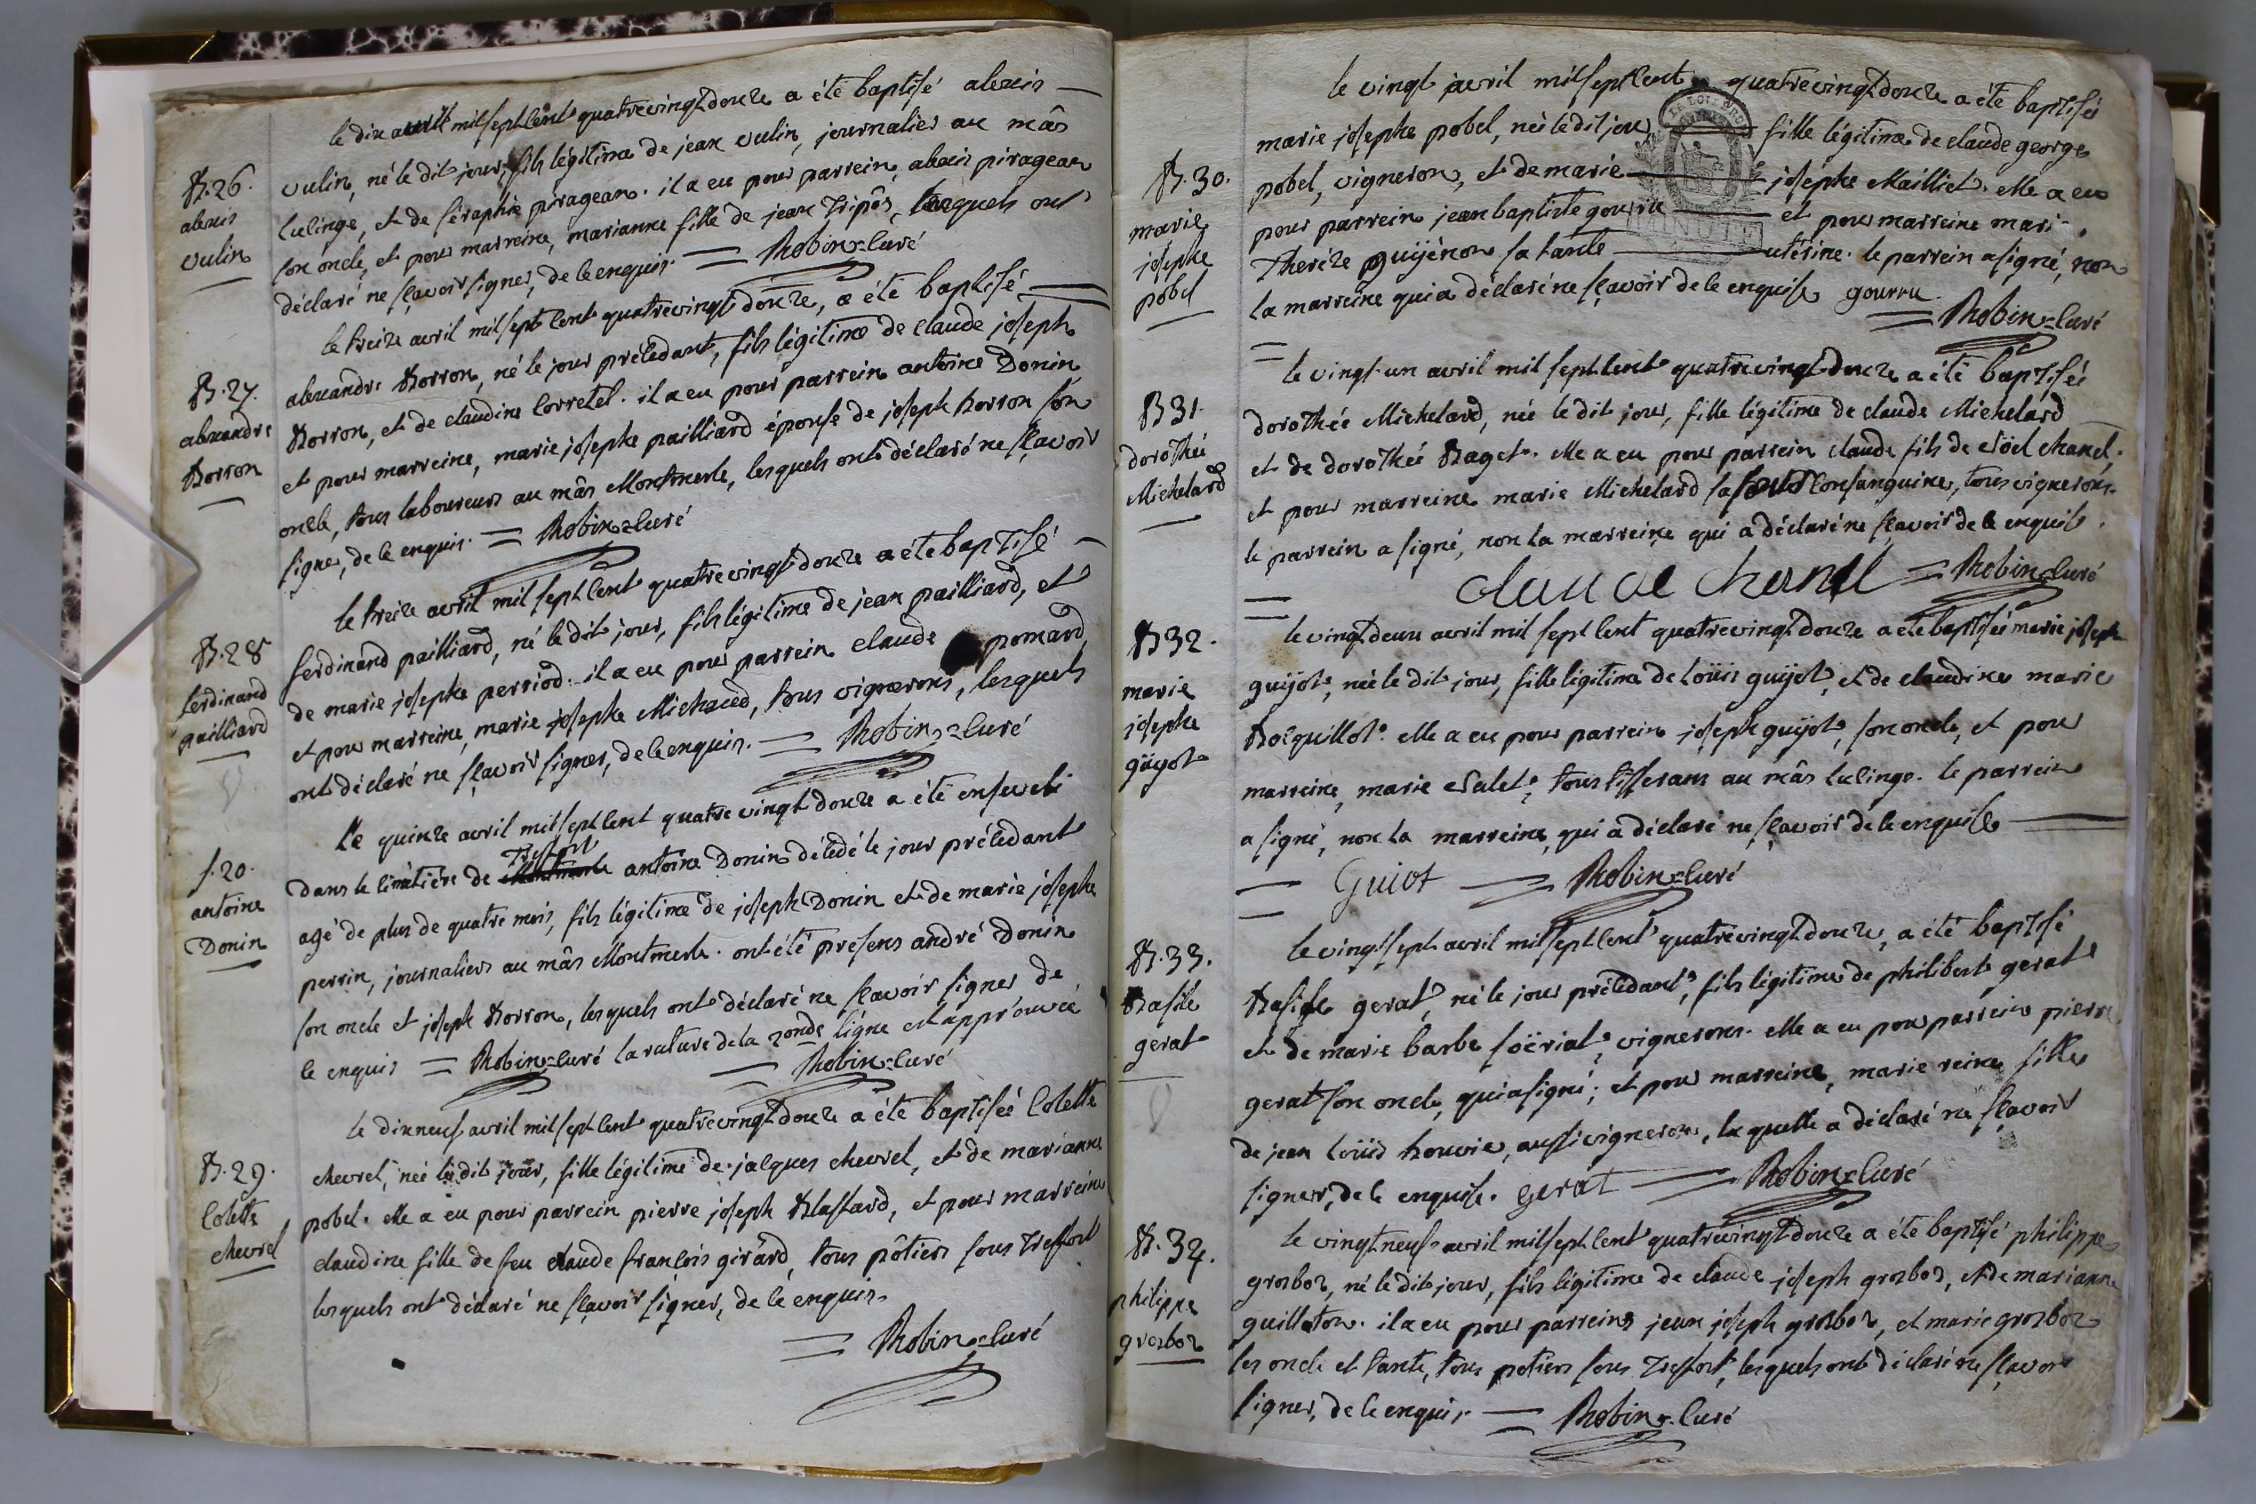 le dix avril mil sept cent quatrevingt douze a été baptisé alexis
B. 26.
alexis
vulin
vulin, né le dit jour, fils légitime de jean vulin, journalier au mâs
lulinge, et de séraphie piragean. il a eu pour parrein, alexis piragean
son oncle, et pour marreine, marianne fille de jean Tripôz, lesquels ont
déclaré ne sçavoir signer, de ce enquis. = Robin=curé
le treize avril mil sept cent quatrevingt douze, a été baptisé
B. 27.
alexandre
Borron
alexandre Borron, né le jour précédant, fils légitime de claude joseph
Borron, et de claudine Corretel. il a eu pour parrein antoine Donin
et pour marreine, marie josephe pailliard épouse de joseph Borron son
oncle, tous laboureurs au mâs Montmerle, lesquels ont déclaré ne sçavoir
signer, de ce enquis. = Robin=curé
le treize avril mil sept cent quatrevingt douze a été baptisé
B. 28
ferdinand
pailliard
ferdinand pailliard, né le dit jour, fils légitime de jean pailliard, et
de marie josephe perriod. il a eu pour parrein claude pomard,
et pour marreine, marie josephe Michaud, tous vignerons, lesquels
ont déclaré ne sçavoir signer, de ce enquis. = Robin=curé
Le quinze avril mil sept cent quatrevingt douze a été enseveli
f. 20.
antoine
Donin
Treffort
dans le cimétière de Montmerle antoine Donin décédé le jour précédant
agé de plus de quatre mois, fils légitime de joseph Donin et de marie josephe
perrin, journaliers au mâs Montmerle. ont été présens andré Donin
son oncle et joseph Borron, lesquels ont déclaré ne sçavoir signer de
ce enquis = Robin=curé la rature de la 2onde ligne est approuvée
= Robin=curé
le dixneuf avril mil sept cent quatrevingt douze a été baptisée Colette
B. 29.
Colette
chevrel
chevrel, née le dit jour, fille légitime de jacques chevrel, et de marianne
pobel. elle a eu pour parrein pierre joseph Blassard, et pour marreine
claudine fille de feu claude françois girard, tous pôtiers sous Treffort
lesquels ont déclaré ne sçavoir signer, de ce enquis.
= Robin=curé
le vingt avril mil sept cent quatrevingt douze a été baptisée
B. 30.
marie
josephe
pobel
marie josephe pobel, née le dit jour fille légitime de claude george
pobel, vigneron, et de marie josephe Mailliet. elle a eu
pour parrein jean baptiste gourru et pour marreine marie
Thérèze guyénon sa tante utérine. le parrein a signé, non
la marreine qui a déclaré ne sçavoir de ce enquise gourru
= Robin=curé
le vingt-un avril mil sept cent quatrevingt douze a été baptisée
B 31.
dorothée
Michelard
dorothée Michelard, née le dit jour, fille légitime de claude Michelard
et de dorothée Baget. elle a eu pour parrein claude fils de Noël chanel,
et pour marreine marie Michelard sa soeur consanguine, tous vignerons.
le parrein a signé, non la marreine qui a déclaré ne sçavoir de ce enquise.
claude chanel = Robin=curé
le vingt deux avril mil sept cent quatrevingt douze a été baptisée marie joseph
B 32.
marie
josephe
güyot
guijot, née le dit jour, fille légitime de Loüis guijot, et de claudine marie
Bocquillot. elle a eu pour parrein joseph guijot, son oncle, et pour
marreine, marie Salet, tous tisserans au mâs lulinge. le parrein
a signé, non la marreine, qui a déclaré ne sçavoir de ce enquise
Guiot = Robin=curé
le vingt sept avril mil sept cent quatrevingt douze, a été baptisé
B. 33.
Basile
gerat
Basile gerat, né le jour précédant, fils légitime de philibert gerat
et de marie barbe soëriat, vignerons. elle a eu pour parrein pierre
gerat son oncle, qui a signé; et pour marreine, marie reine fille
de jean Loüis houvie, aussi vigneron, laquelle a déclaré ne sçavoir
signer, de ce enquise. gerat = Robin=curé
le vingt neuf avril mil sept cent quatrevingt douze a été baptisé philippe
B. 34.
philippe
grosboz
grosboz, né le dit jour, fils légitime de claude joseph grosboz, et de marianne
guilloton. il a eu pour parreins jean joseph grosboz, et marie grosboz
ses oncle et tante, tous potiers sous Treffort, lesquels ont déclaré ne sçavoir
signer, de ce enquis = Robin=curé